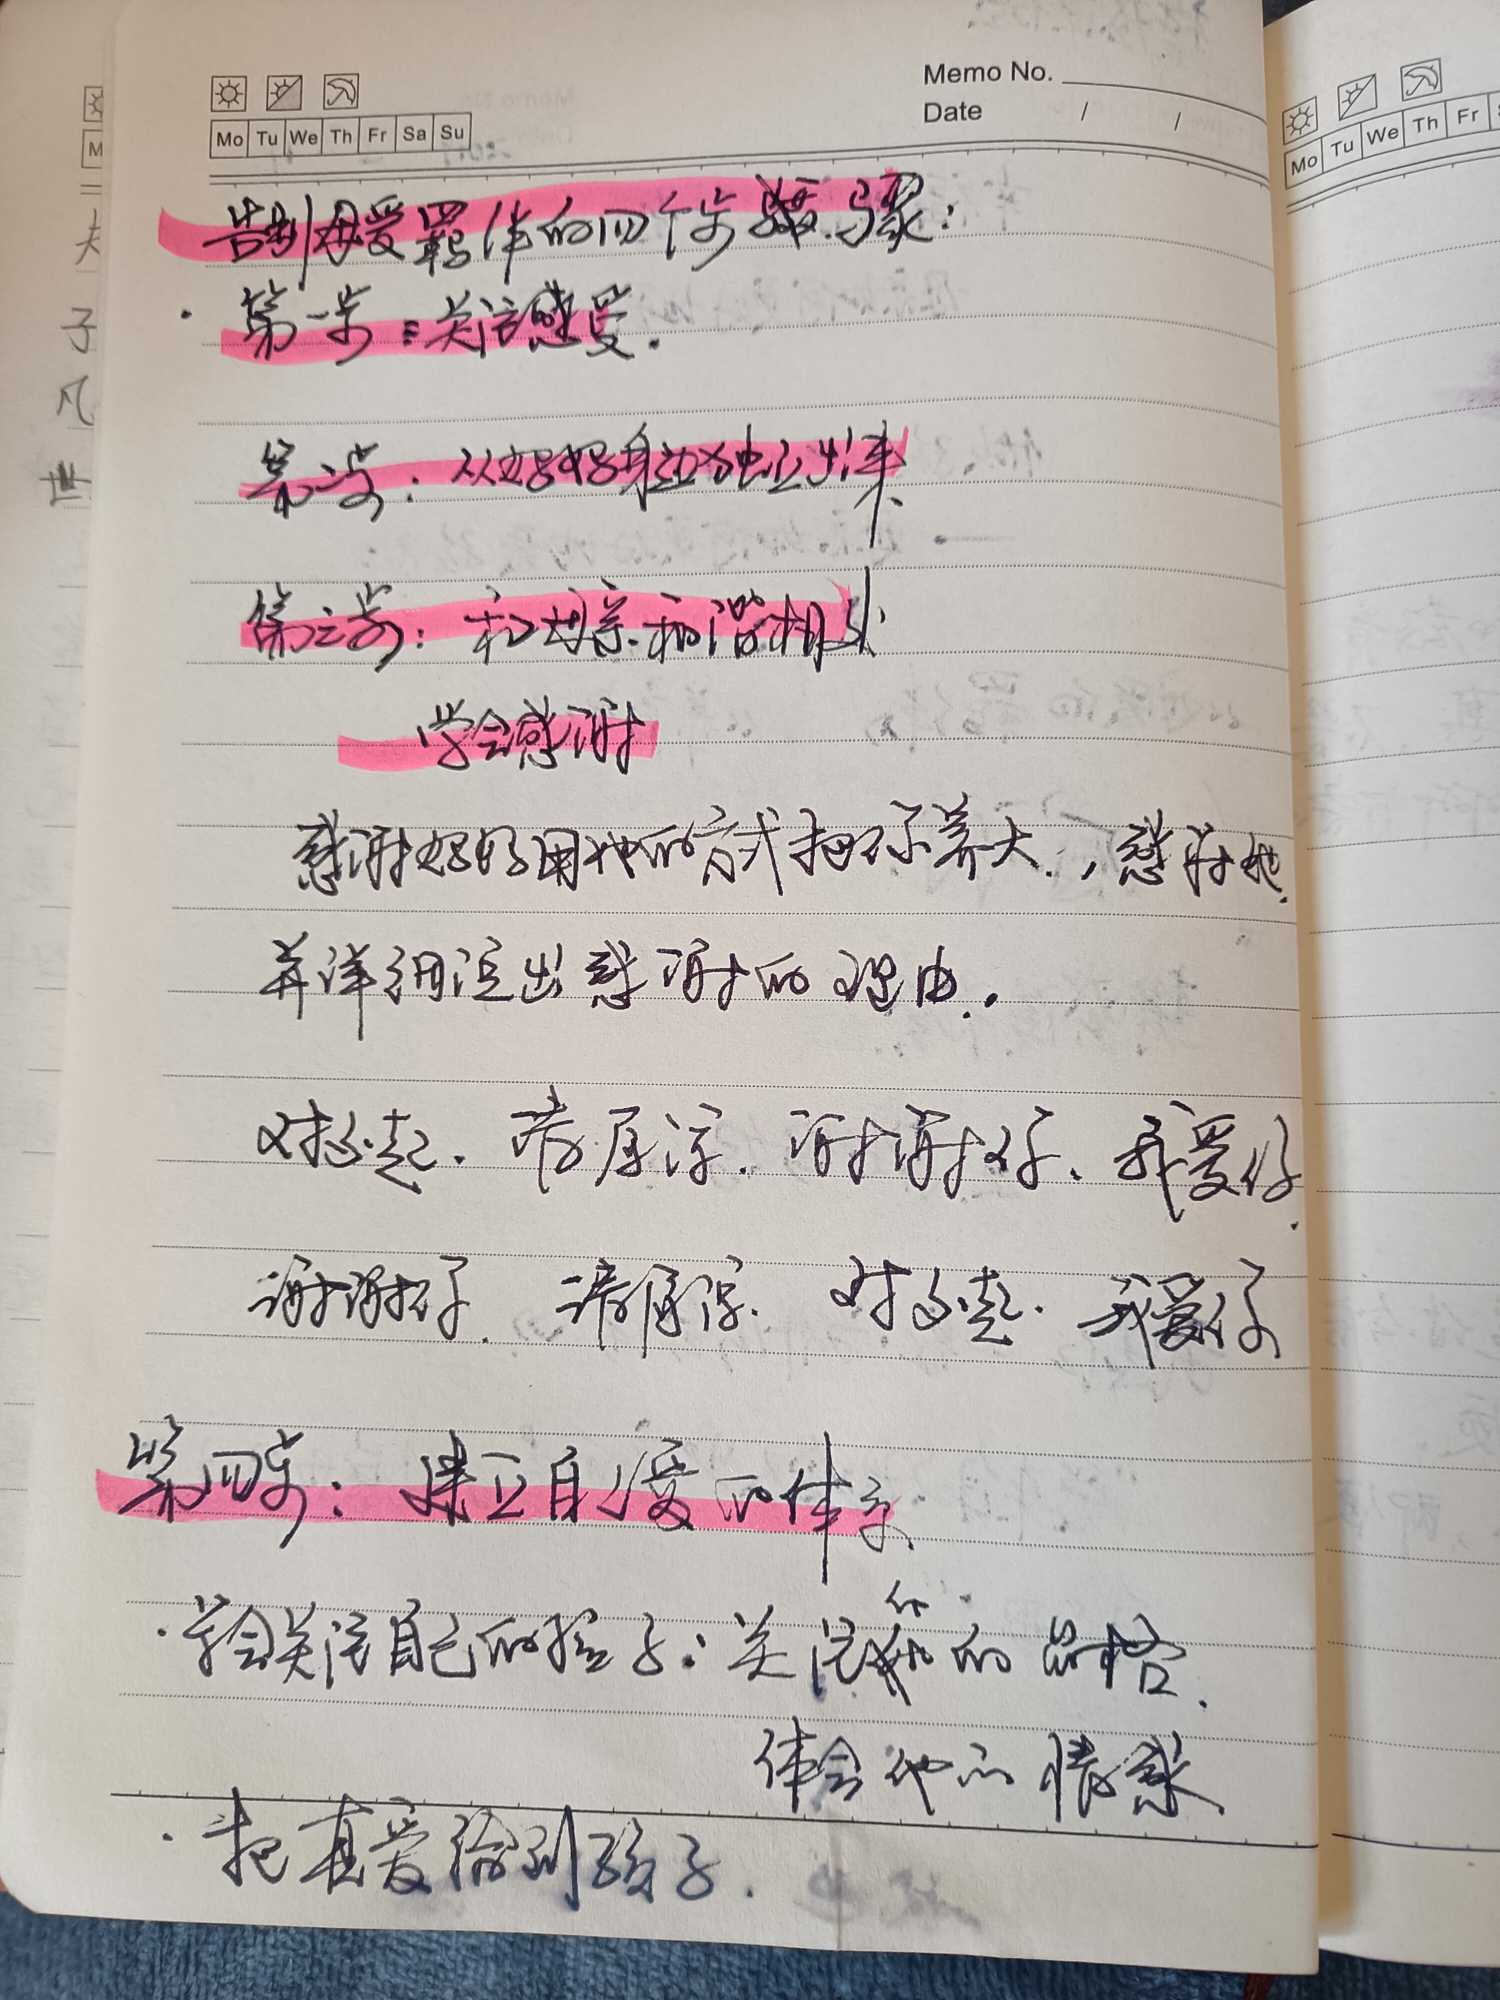 Memo No.
Date / /
Mo Tu We Th Fr Sa Su
告别母爱羁绊的四个步骤:
· 第一步:关注感受.
第二步:从妈妈身边独立出来
第三步:和母亲和谐相处
学会感谢
感谢妈妈用她的方式把你养大,感谢她.
并详细写出感谢的理由.
对不起.请原谅.谢谢你.我爱你.
谢谢你.请原谅.对不起.我爱你
第四步:建立自爱的体系
· 学会关注自己的孩子:关注他的品格.
体会他的情感
· 把真爱给到孩子.
夫
子
凡
世
Mo Tu We Th Fr